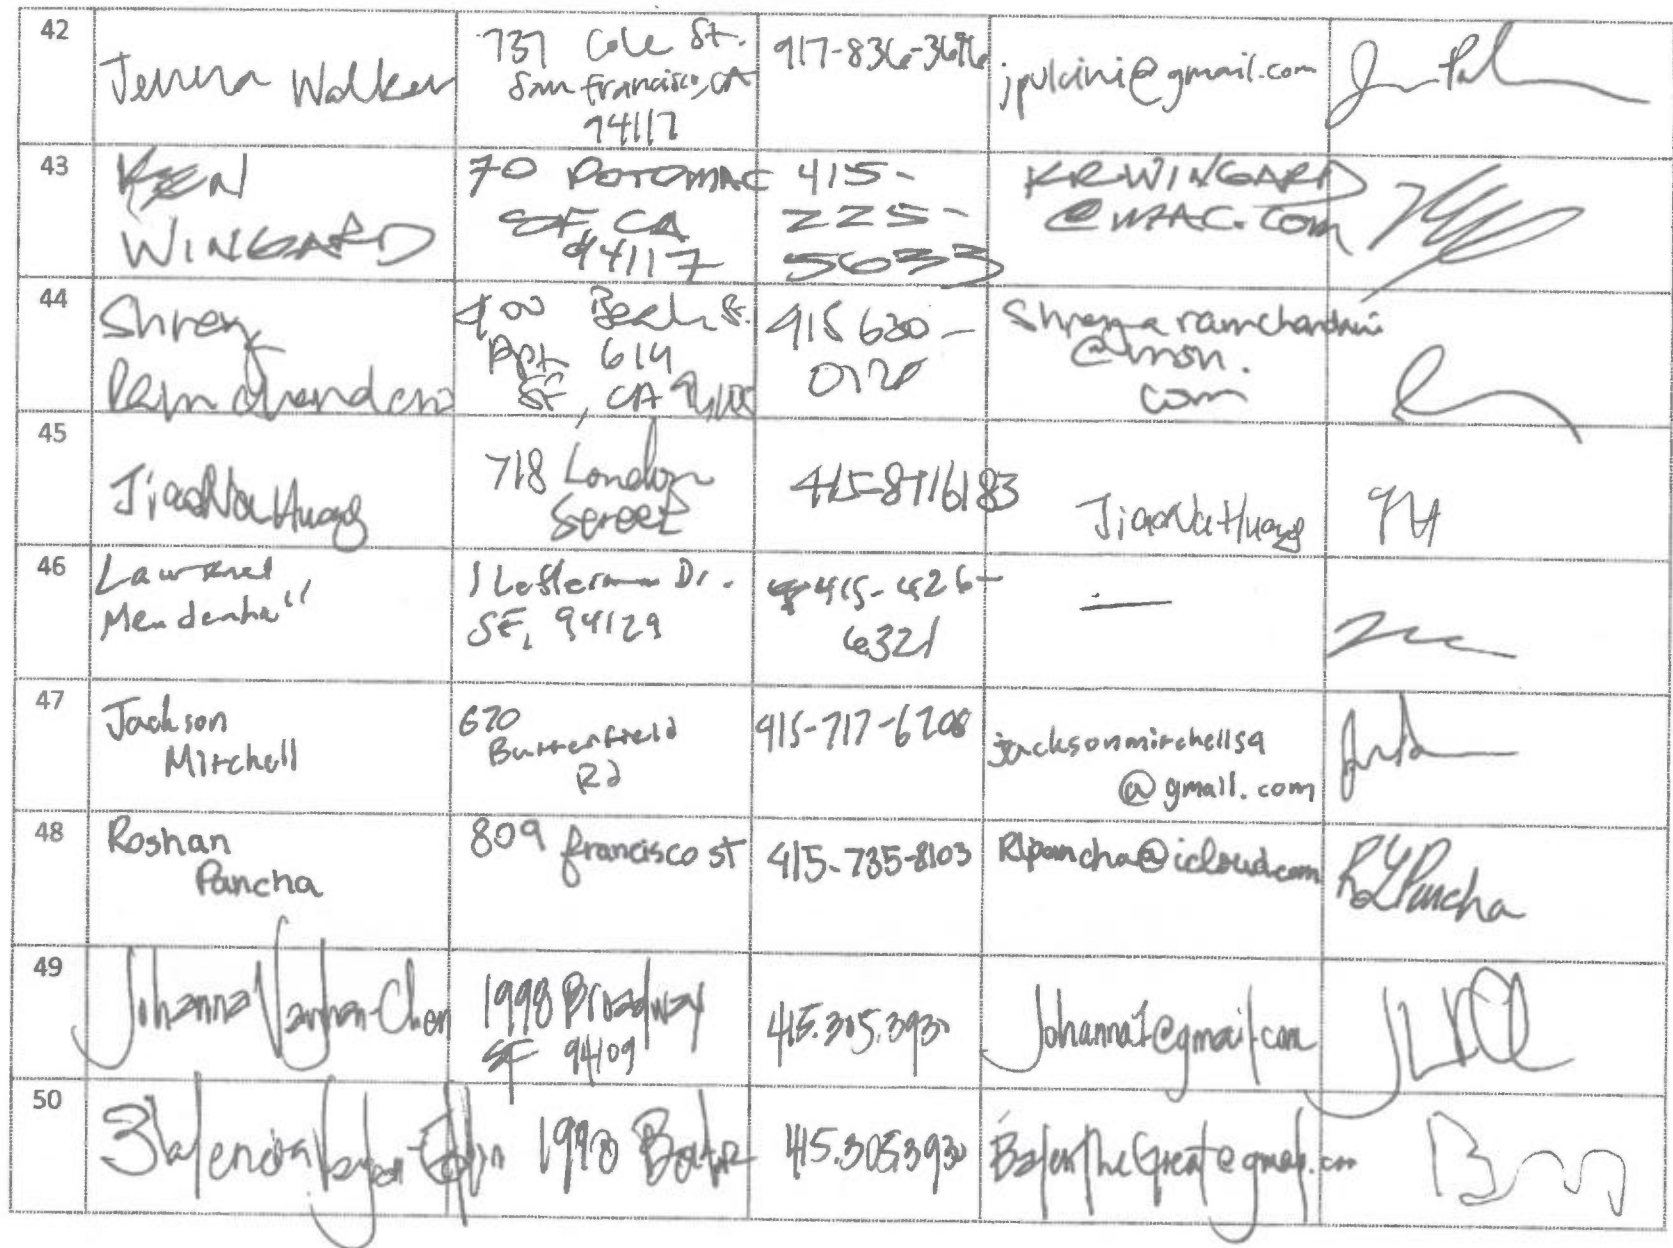 42
Jenna Walker
737 Cole St.
San Francisco, CA
94117
917-836-3696
jpulcini@gmail.com
43
KEN
WINGARD
70 POTOMAC
SF, CA
94117
415-
225-
5633
KRWINGARD
@MAC.COM
44
Shrey
Ramchandani
400 Beach St.
Apt 614
SF, CA
415 630-
@msn.
com
45
JiaoNa Huang
718 London
Street
415-8716183
JiaoNaHuang
46
Mendenhall
1 Letterman Dr.
SF, 94129
415-426-
6321
—
47
Jackson
Mitchell
670
Butterfield
Rd
415-717-6208
jacksonmitchell59
@gmail.com
48
Roshan
Pancha
809 francisco st
415-735-8103
Rlpancha@icloud.com
RLPancha
49
Johanna Vaughan-Chen
1998 Broadway
SF 94109
415.305.3930
Johanna1@gmail.com
50
415.305.3930